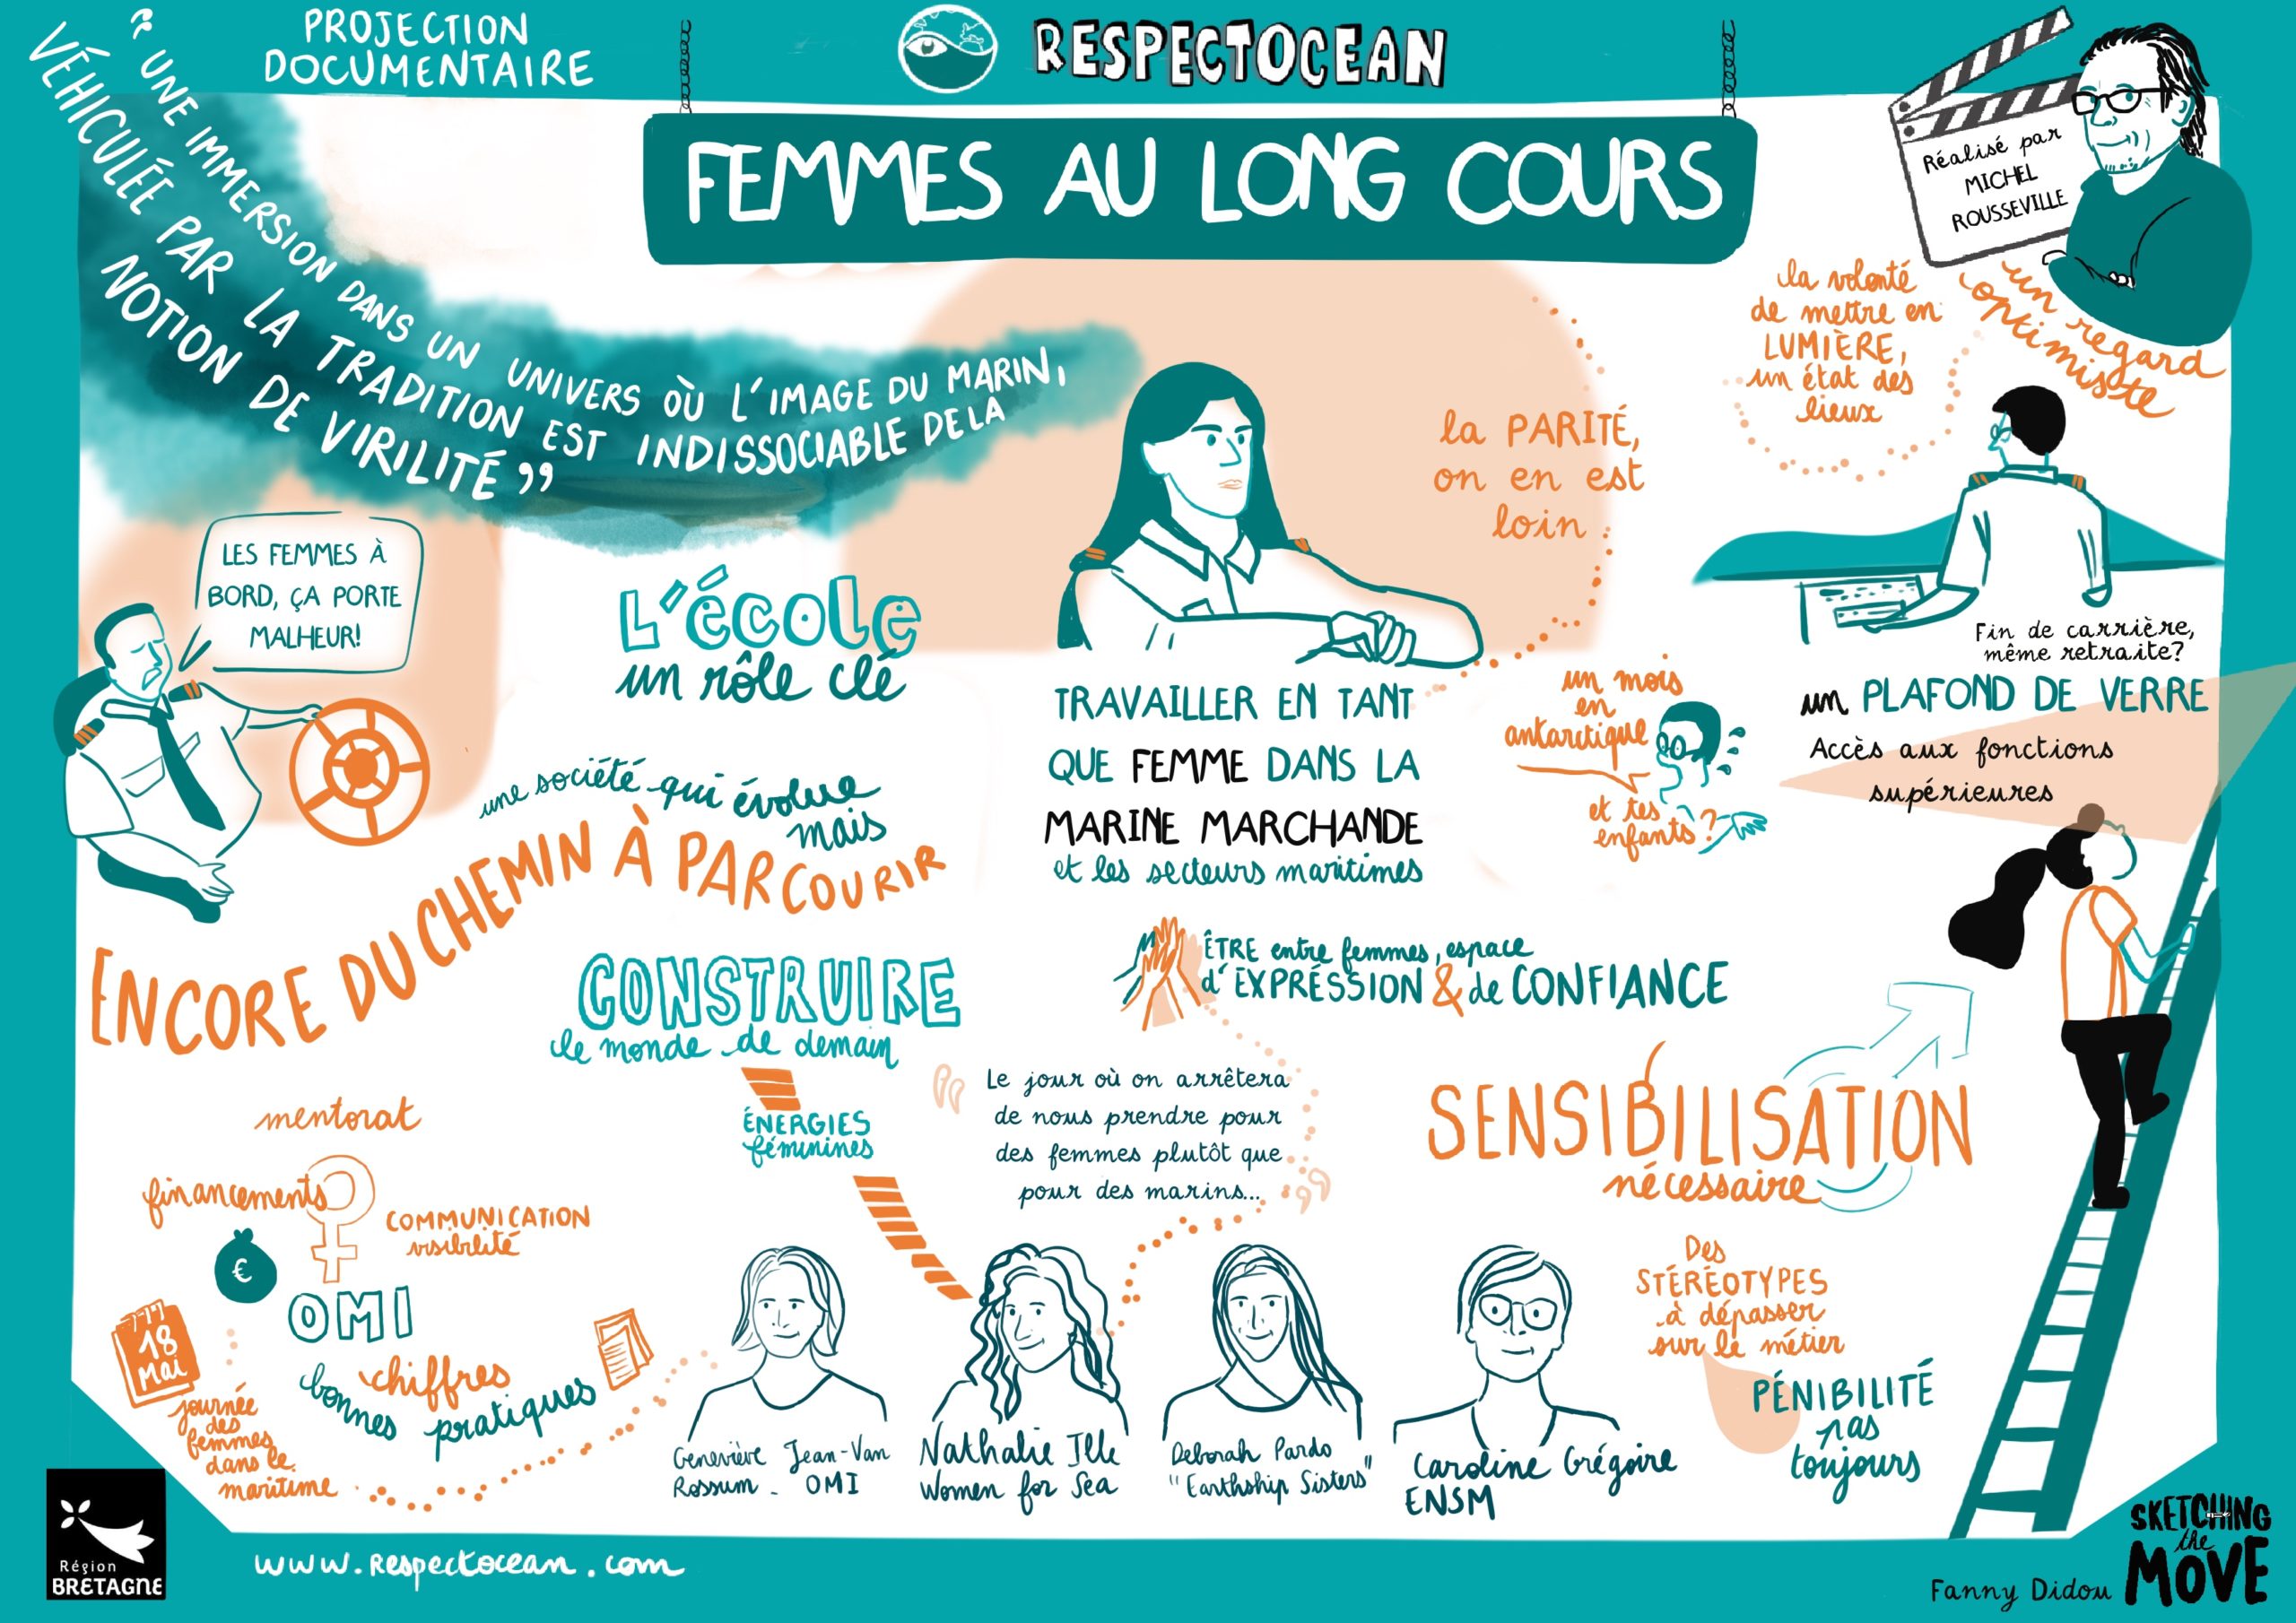 PROJECTION
DOCUMENTAIRE
RESPECTOCEAN
FEMMES AU LONG COURS
Réalisé par
MICHEL
ROUSSEVILLE
un regard
optimiste
la volonté
de mettre en
LUMIÈRE,
un état des
lieux
“ UNE IMMERSION DANS UN UNIVERS OÙ L'IMAGE DU MARIN,
VÉHICULÉE PAR LA TRADITION EST INDISSOCIABLE DE LA
NOTION DE VIRILITÉ ”
LES FEMMES À
BORD, ÇA PORTE
MALHEUR!
L'école
un rôle clé
la PARITÉ,
on en est
loin
TRAVAILLER EN TANT
QUE FEMME DANS LA
MARINE MARCHANDE
et les secteurs maritimes
un mois
en
antarctique
et tes
enfants?
Fin de carrière,
même retraite?
un PLAFOND DE VERRE
Accès aux fonctions
supérieures
une société qui évolue
mais
ENCORE DU CHEMIN À PARCOURIR
CONSTRUIRE
le monde de demain
ÉNERGIES
féminines
ÊTRE entre femmes, espace
d'EXPRESSION & de CONFIANCE
“ Le jour où on arrêtera
de nous prendre pour
des femmes plutôt que
pour des marins... ”
SENSIBILISATION
nécessaire
mentorat
financements
COMMUNICATION
visibilité
€
OMI
18
MAI
journée
des
femmes
dans le
maritime
chiffres
bonnes pratiques
Geneviève Jean-Van
Rossum - OMI
Nathalie Ille
Women for Sea
Deborah Pardo
"Earthship Sisters"
Caroline Grégoire
ENSM
Des
STÉRÉOTYPES
à dépasser
sur le métier
PÉNIBILITÉ
pas
toujours
Région
BRETAGNE
www.respectocean.com
Fanny Didou
SKETCHING
the
MOVE